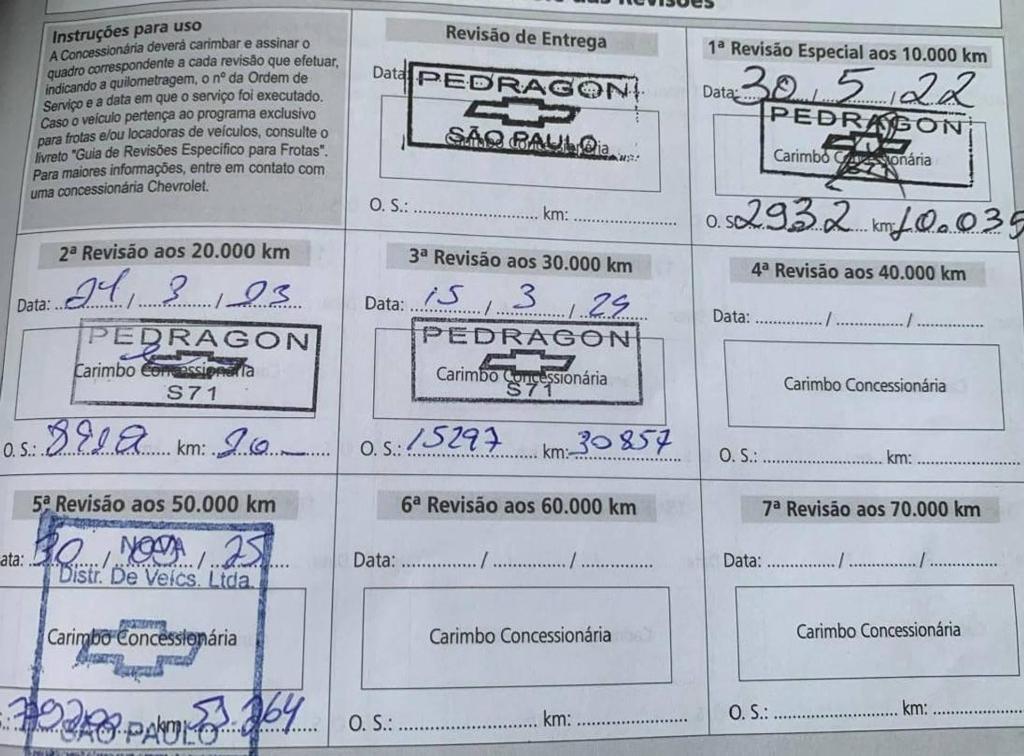 das Revisões
Instruções para uso
A Concessionária deverá carimbar e assinar o
quadro correspondente a cada revisão que efetuar,
indicando a quilometragem, o nº da Ordem de
Serviço e a data em que o serviço foi executado.
Caso o veículo pertença ao programa exclusivo
para frotas e/ou locadoras de veículos, consulte o
livreto "Guia de Revisões Específico para Frotas".
Para maiores informações, entre em contato com
uma concessionária Chevrolet.
Revisão de Entrega
Data
PEDRAGON
SÃO PAULO
Carimbo Concessionária
O. S.: km:
1ª Revisão Especial aos 10.000 km
Data: 30 / 5 / 22
PEDRAGON
Carimbo Concessionária
S71
O. S 2932 km: 10.035
2ª Revisão aos 20.000 km
Data: / 3 / 23
PEDRAGON
Carimbo Concessionária
S71
O. S.: km: 20
3ª Revisão aos 30.000 km
Data: 15 / 3 /
PEDRAGON
Carimbo Concessionária
S71
O. S.: 15297 km: 30857
4ª Revisão aos 40.000 km
Data: / /
Carimbo Concessionária
O. S.: km:
5ª Revisão aos 50.000 km
ata: / / 25
NOVA
Distr. De Veícs. Ltda.
Carimbo Concessionária
km: 53.264
SÃO PAULO
6ª Revisão aos 60.000 km
Data: / /
Carimbo Concessionária
O. S.: km:
7ª Revisão aos 70.000 km
Data: / /
Carimbo Concessionária
O. S.: km: